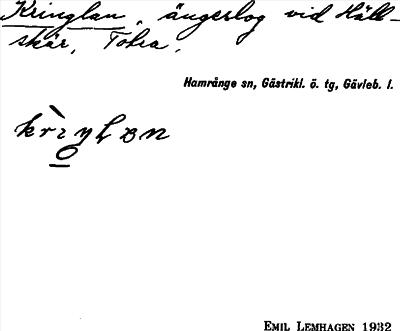 Kringlan, ängerlog vid Häll-
skär, Tolra.
Hamrånge sn, Gästrikl. ö. tg, Gävleb. l.
EMIL LEMHAGEN 1932